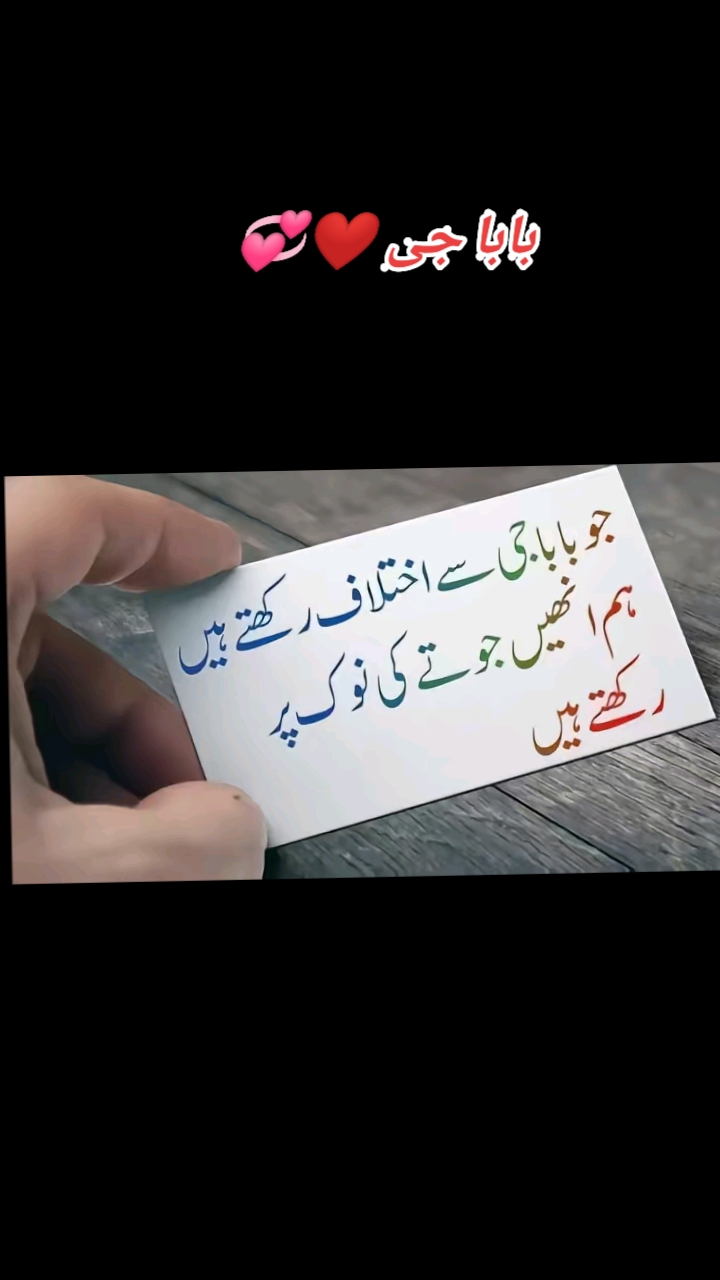 بابا جی ❤️💞
جو بابا جی سے اختلاف رکھتے ہیں
ہم انھیں جوتے کی نوک پر
رکھتے ہیں